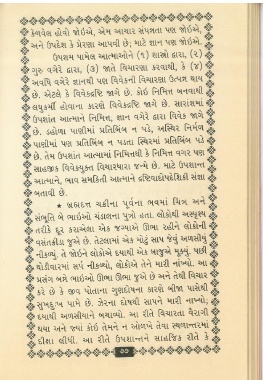 કેળવેલ હોવો જોઇએ, એમ આચાર સંપન્નતા પણ જોઇએ,
અને ઉપદેશ કે પ્રેરણા આપવી છે; માટે જ્ઞાન પણ જોઇએ.
ઉપશમ પામેલ આત્માઓને (૧) શાસ્ત્રો દ્વારા, (૨)
ગુરુ વગેરે દ્વારા, (૩) જાતે વિચારણા કરવાથી, કે (૪)
અવધિ વગેરે જ્ઞાનથી પણ વિવેકની વિચારણા ઉત્પન્ન થાય
છે. એટલે કે વિવેકદ્રષ્ટિ જાગે છે. કોઈ નિમિત્ત બનવાથી
લઘુકર્મી હોવાના કારણે વિવેકદ્રષ્ટિ જાગે છે. સારાંશમાં
ઉપશાંત આત્માને નિમિત્ત, જ્ઞાન વગેરે દ્વારા વિવેક જાગે
છે. ડહોળા પાણીમાં પ્રતિબિંબ ન પડે, અસ્થિર નિર્મળ
પાણીમાં પણ પ્રતિબિંબ ન પડતા સ્થિરમાં પ્રતિબિંબ પડે
છે. તેમ ઉપશાંત આત્મામાં નિમિત્તથી કે નિમિત્ત વગર પણ
સાહજીક વિવેકયુક્ત વિચારધારા જન્મે છે. માટે ઉપશાન્ત
આત્માને, ભાવ સમકિતી આત્માને દ્રષ્ટિવાદોપદેશિકી સંજ્ઞા
બતાવી છે.
★ બ્રહ્મદત્ત ચક્રીના પૂર્વના ભવમાં ચિત્ર અને
સંભૂતિ બે ભાઇઓ ચંડાલના પુત્રો હતા. લોકોથી અસ્પૃશ્ય
તરીકે દૂર કરાએલા એક જગ્યાએ ઊભા રહીને લોકોની
વસંતક્રીડા જુએ છે. તેટલામાં એક મોટું સાપ જેવું અળસીયું
નીકળ્યું, તે જોઈને લોકોએ દયાથી એક બાજુએ મૂક્યું. પછી
થોડીવારમાં સર્પ નીકળ્યો, લોકોએ તેને મારી નાંખ્યો. આ
પ્રસંગ બંને ભાઇઓ ઊભા ઊભા જુએ છે અને તેથી વિચાર
કરે છે કે જીવ પોતાના ગુણદોષના કારણે બીજા પાસેથી
સુખદુઃખ પામે છે. ઝેરના દોષથી સાપને મારી નાખ્યો;
દયાથી અળસીયાને બચાવ્યો. આ રીતે વિચારતા વૈરાગી
થયા અને જ્યાં કોઈ તેમને ન ઓળખે તેવા સ્થળાન્તરમાં
દીક્ષા લીધી. આ રીતે ઉપશાન્તને સાહજિક રીતે કે
૭૭